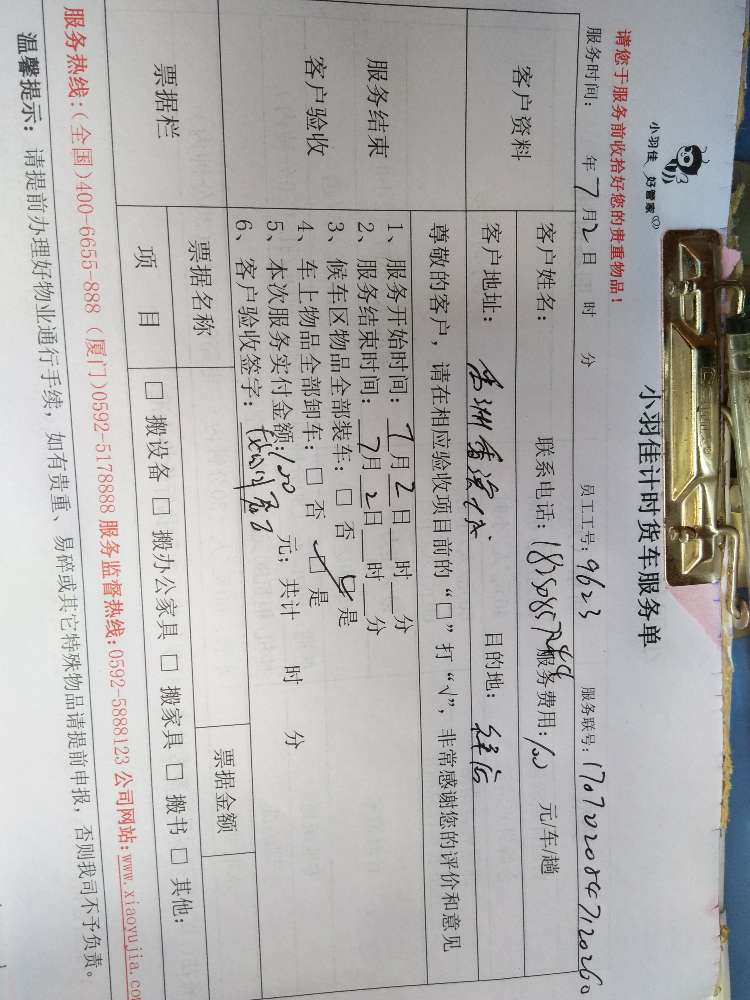 小羽佳 好管家
小羽佳计时货车服务单
请您于服务前收拾好您的贵重物品！
服务时间： 年7月2日 时 分 员工工号：9623 服务联号：1707020847120260
客户资料
客户姓名： 联系电话： 服务费用：100 元/车/趟
客户地址： 目的地：
尊敬的客户，请在相应验收项目前的“□”打“√”，非常感谢您的评价和意见
服务结束
客户验收
1、服务开始时间：7月2日__时__分
2、服务结束时间：7月2日__时__分
3、候车区物品全部装车：□ 否 □ 是
4、车上物品全部卸车：□ 否 □ 是
5、本次服务实付金额：100 元；共计 时 分
6、客户验收签字：
票据栏
票据名称 票据金额
项 目 □ 搬设备 □ 搬办公家具 □ 搬家具 □ 搬书 □ 其他：
服务热线：（全国）400-6655-888（厦门）0592-5178888 服务监督热线：0592-5888123 公司网站：www.xiaoyujia.co
温馨提示：请提前办理好物业通行手续，如有贵重、易碎或其它特殊物品请提前申报，否则我司不予负责。